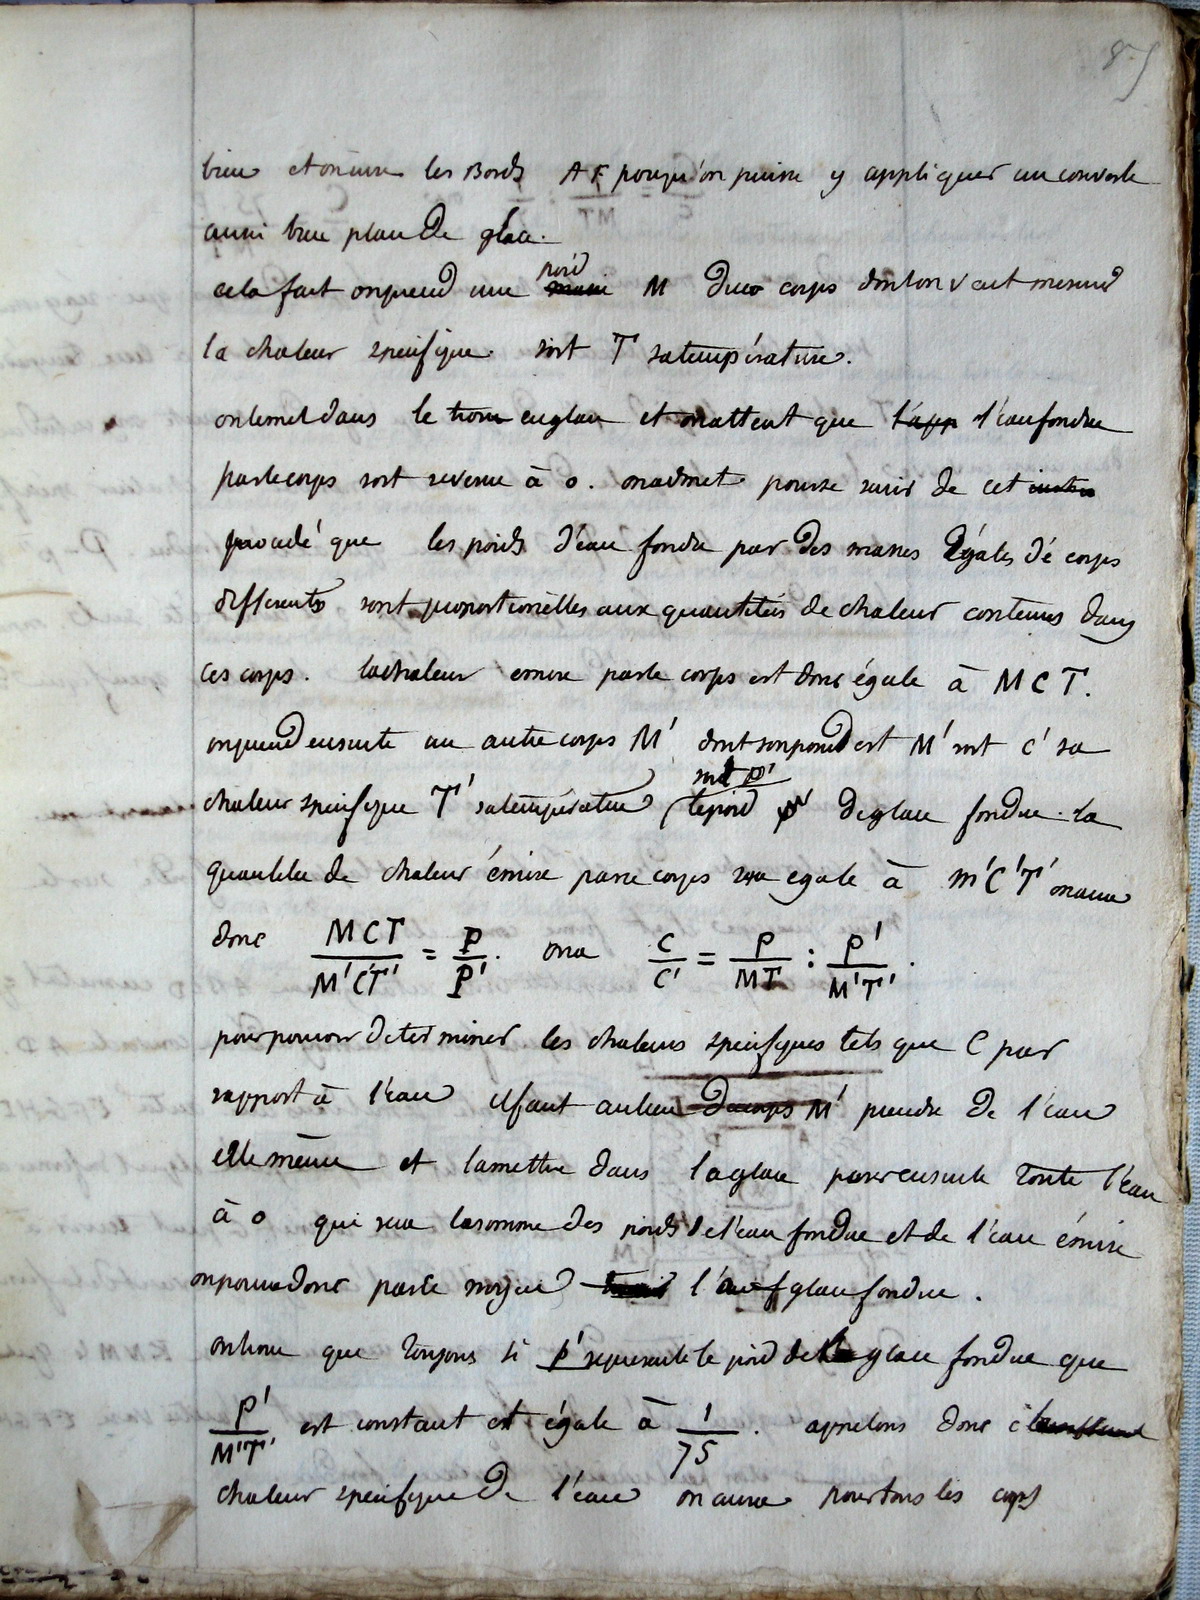 85
bien et on use les Bords AF pour qu'on puisse y appliquer un couvercle
aussi bien plan De glace.
cela fait on prend une poid M Du corps dont on veut mesurer
la chaleur specifique soit T sa température.
on le met dans le trou en glace et on attent que l'eau fondue
par le corps soit revenue à 0. on admet pour se servir de cet
procédé que les poids d'eau fondue par Des masses Egales de corps
differents sont proportionelles aux quantités de chaleur contenues dans
ces corps. la chaleur émise par le corps est donc égale à MCT.
on prend ensuite un autre corps M' dont son poid est M' soit C' sa
chaleur specifique T' sa température soit P'
le poid De glace fondue. la
quantitée de chaleur émise par ce corps sera egale à M'C'T' on aura
donc MCT/M'C'T' = P/P'. on a C/C' = P/MT : P'/M'T'.
pour pouvoir determiner les chaleurs specifiques tels que C par
rapport à l'eau il faut au lieu Du corps M' prendre De l'eau
elle même et la mettre dans la glace peser ensuite toute l'eau
à 0 qui sera la somme des poids de l'eau fondue et de l'eau émise
on poura donc par ce moyen l' glace fondue.
on trouve que toujours si P' represente le poid de la glace fondue que
P'/M'T' est constant et égale à 1/75. appelons donc
chaleur specifique De l'eau on aura pour tous les corps